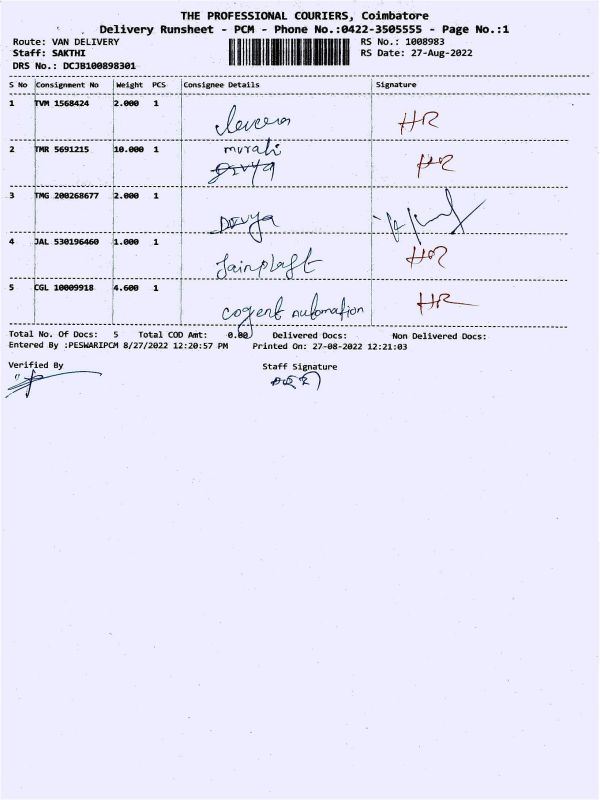 THE PROFESSIONAL COURIERS, Coimbatore
Delivery Runsheet - PCM - Phone No.:0422-3505555 - Page No.:1
Route: VAN DELIVERY RS No.: 1008983
Staff: SAKTHI RS Date: 27-Aug-2022
DRS No.: DCJB100898301
S No Consignment No Weight PCS Consignee Details Signature
1 TVM 1568424 2.000 1 HR
2 TMR 5691215 10.000 1 murali HR
Divya
3 TMG 200268677 2.000 1 Divya
4 JAL 530196460 1.000 1 Jainplast HR
5 CGL 10009918 4.600 1 cogent Automation HR
Total No. Of Docs: 5 Total COD Amt: 0.00 Delivered Docs: Non Delivered Docs:
Entered By :PESWARIPCM 8/27/2022 12:20:57 PM Printed On: 27-08-2022 12:21:03
Verified By Staff Signature